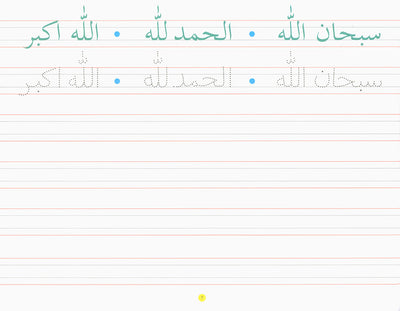 سبحان الله • الحمد لله • الله اكبر
سبحان الله • الحمد لله • الله اكبر